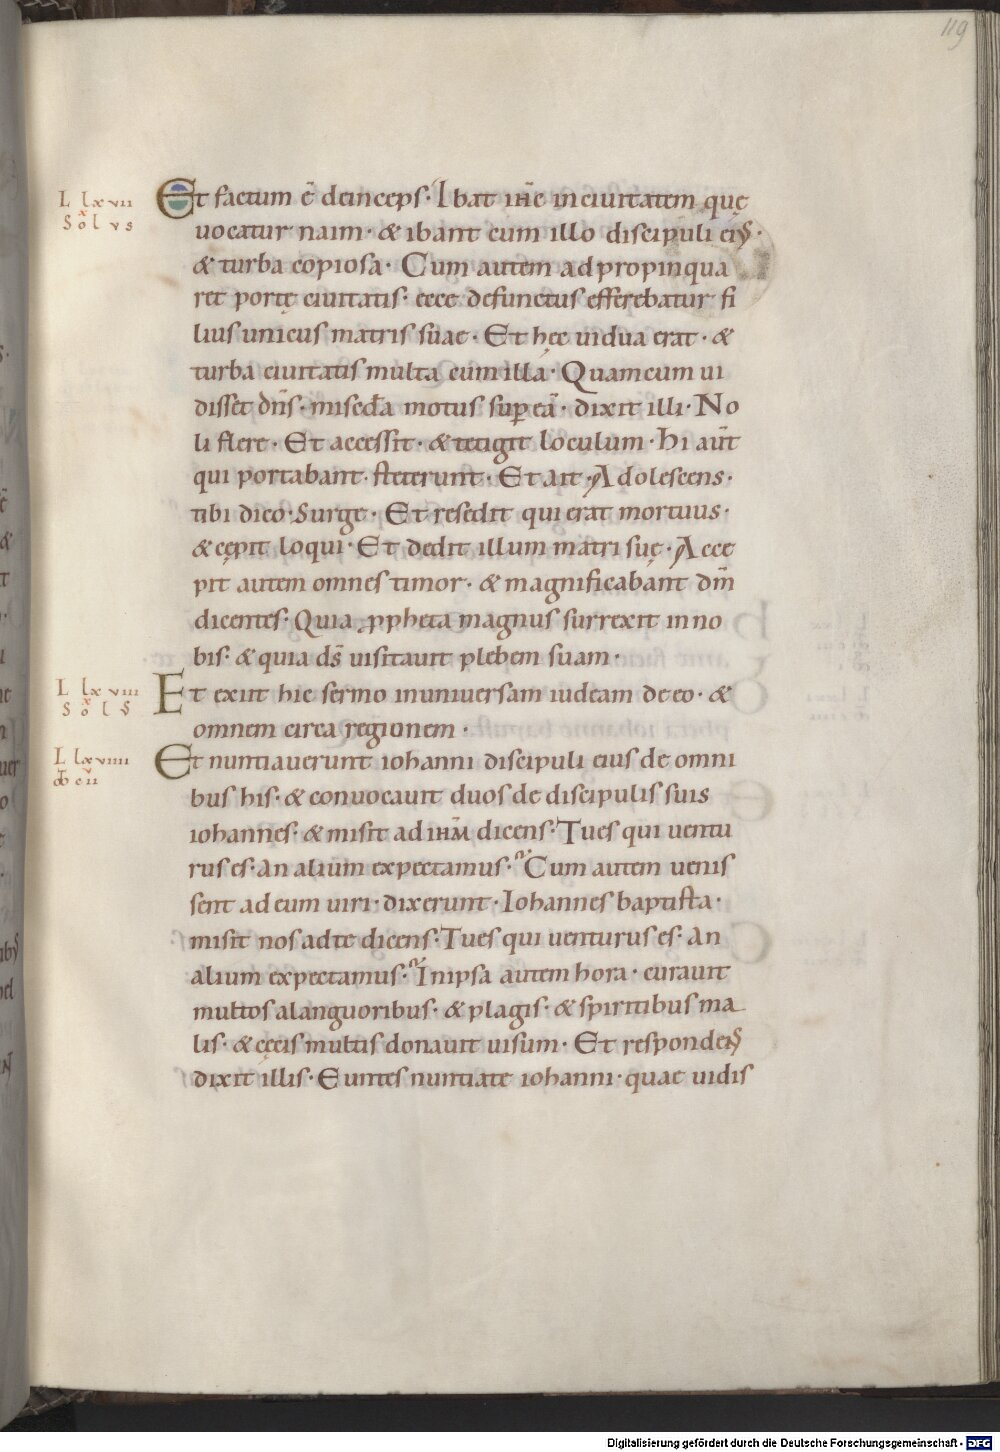 119
L lxvii
Et factum ē deinceps· Ibat ihc̄ in ciuitatem quę
x
Sol vs
uocatur naim· & ibant cum illo discipuli eiꝰ·
& turba copiosa· Cum autem adpropinqua
ret portę ciuitatis· ecce defunctus efferebatur fi
lius unicus matris suae· Et hęc uidua erat· &
turba ciuitatis multa cum illa· Quam cum ui
disset dn̄s· misc̄da motus sup eā· dixit illi· No
li flere· Et accessit· & tetigit loculum· hi aūt
qui portabant· steterunt· Et ait· Adolescens·
tibi dico· Surge· Et resedit qui erat mortuus·
& cępit loqui· Et dedit illum matri suę· Acce
pit autem omnes timor· & magnificabant dm̄
dicentes· Quia ꝓpheta magnus surrexit in no
bis· & quia ds̄ uisitauit plebem suam·
L lxviii
Et exiit hic sermo in uniuersam iudeam de eo· &
x
omnem circa regionem·
L lxviiii
Et nuntiauerunt iohanni discipuli eius de omni
bus his· & conuocauit duos de discipulis suis
iohannes· & misit ad ihm̄ dicens· Tu es qui uentu
rus es· an alium expectamus· Cum autem uenis
sent ad eum uiri· dixerunt· Iohannes baptista·
misit nos ad te dicens· Tu es qui uenturus es· an
alium expectamus· In ipsa autem hora· curauit
multos a languoribus· & plagis· & spiritibus ma
lis· & cęcis multis donauit uisum· Et respondenꝰ
dixit illis· Euntes nuntiate iohanni· quae uidis
Digitalisierung gefördert durch die Deutsche Forschungsgemeinschaft - DFG